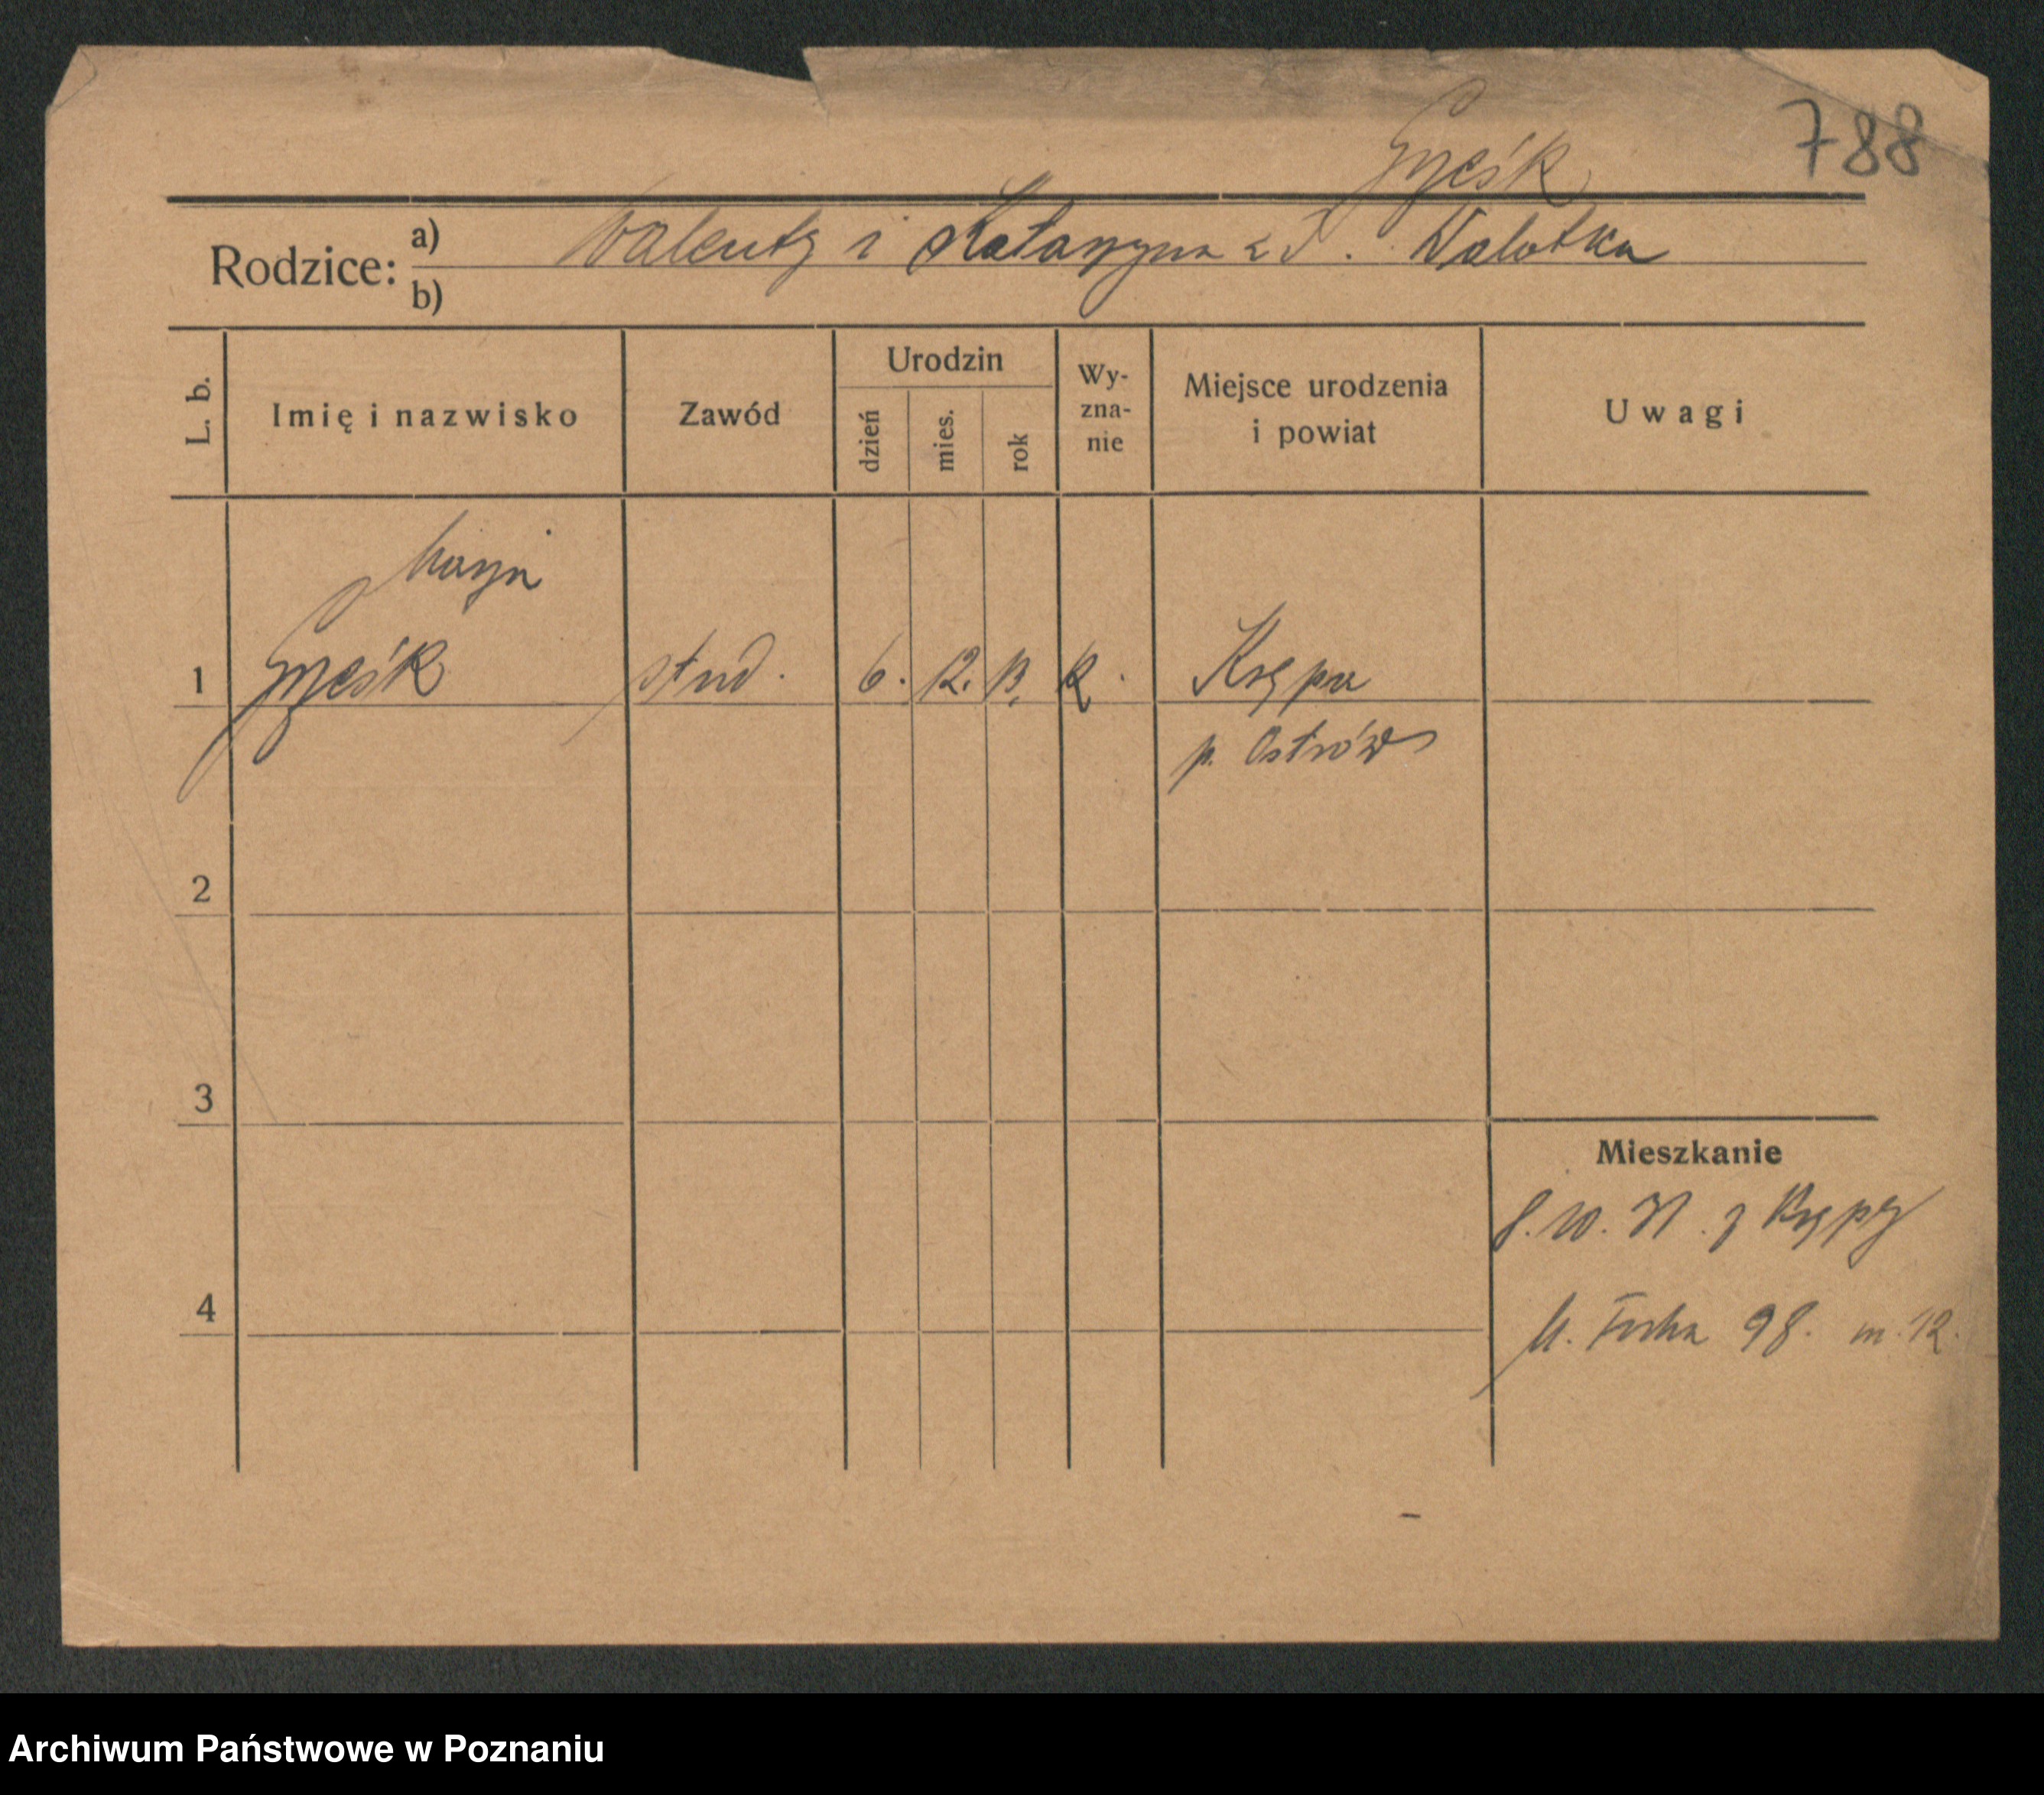 788
Gześk
Rodzice: a) Walenty i Katarzyna z d. Walotka
b)
L. b. Imię i nazwisko Zawód Urodzin dzień mies. rok Wy-zna-nie Miejsce urodzenia i powiat Uwagi
Marja
1 Gześk stud. 6. 12. 13. k. Krępa
p. Ostrów
2
3
Mieszkanie
8. 10. 31. z Krępy
4
M. Focha 98. m. 12.
Archiwum Państwowe w Poznaniu